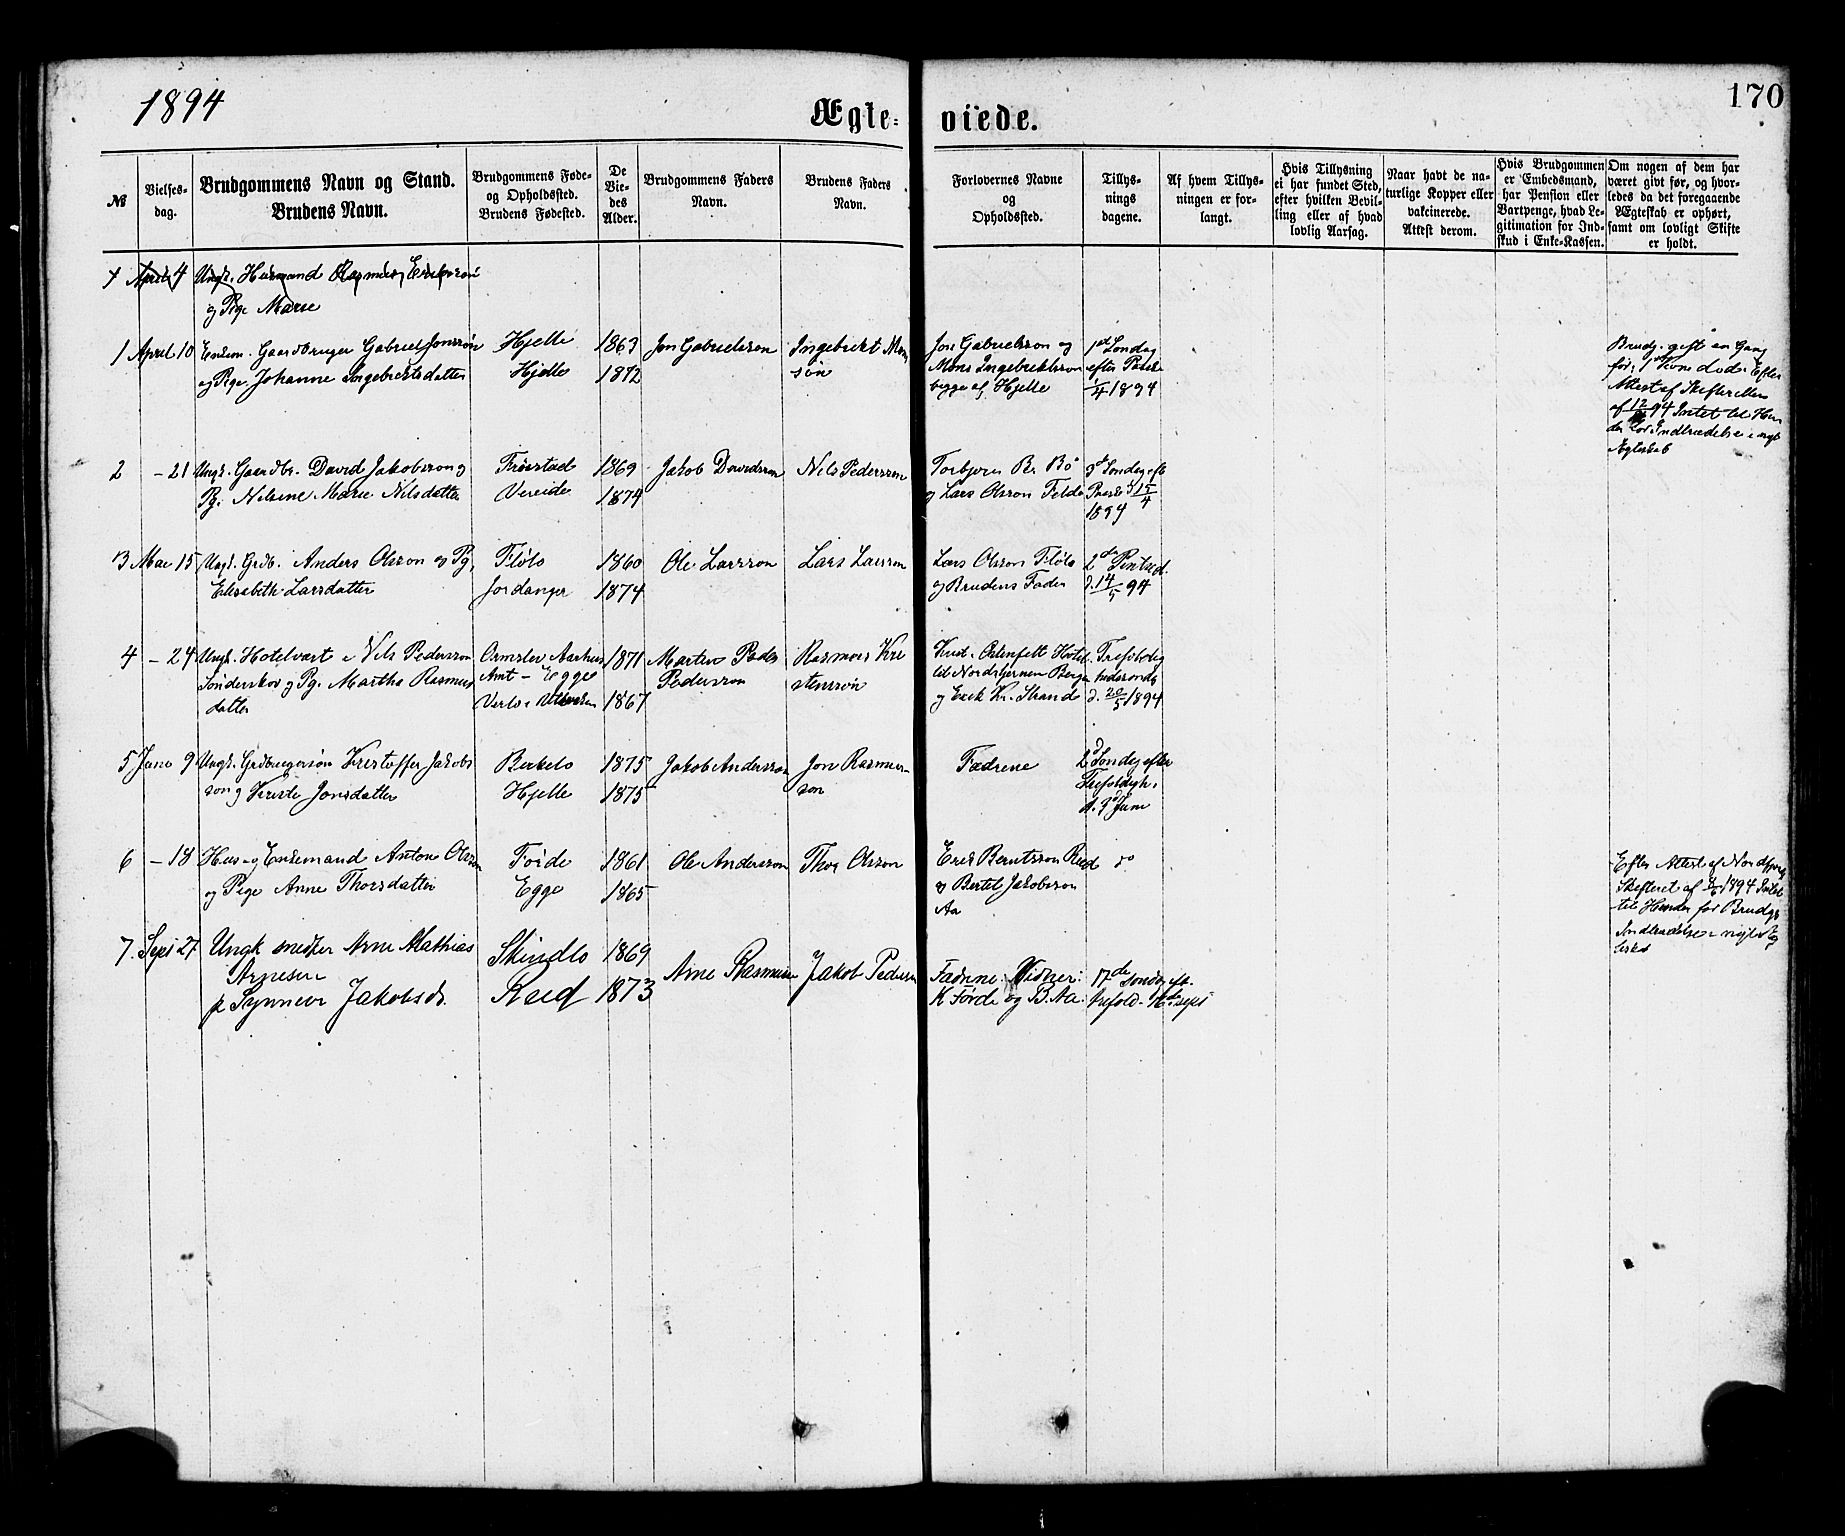 1894
Ægte- viede.
170
№
Vielses-
dag.
Brudgommens Navn og Stand.
Brudens Navn.
Brudgommens Føde-
og Opholdssted.
Brudens Fødested.
De
Vie-
des
Alder.
Brudgommens Faders
Navn.
Brudens Faders
Navn.
Forlovernes Navne
og
Opholdssted.
Tillys-
nings
dagene.
Af hvem Tillys-
ningen er for-
langt.
Hvis Tillysning
ei har fundet Sted,
efter hvilken Bevil-
ling eller af hvad
lovlig Aarsag.
Naar havt de na-
turlige Kopper eller
vakcinerede.
Attest derom.
Hvis Brudgommen
er Embedsmand,
har Pension eller
Vartpenge, hvad Le-
gitimation for Ind-
skud i Enke-Kassen.
Om nogen af dem har
været givt før, og hvor-
ledes da det foregaaende
Ægteskab er ophørt,
samt om lovligt Skifte
er holdt.
1 April 4 Ungk. Husmand Rasmus
og Pige Marie
1 April 10 Enkem. Gaardbruger Gabriel Jonssøn
og Pige Johanne Ingebrektsdatter
Hjelle
Hjelle
1863
1872
Jon Gabrielsson
Ingebrekt Mon
søn
Jon Gabrielsson og
Mons Ingebrektsson
begge af Hjelle
1ste Søndag
efter Paaske
1/4 1894
Brudg. gift en Gang
før; Kone død. Efter
Attest af Skifteretten
af 12/ 94 Intet til Hin
der for Indtrædelse i nyt
Ægteskab
2 - 21 Ungk. Gaardbr. David Jakobsson og
Pg. Nilsine Marie Nilsdatter
Frøistad
Vereide
1869
1874
Jakob Davidsson
Nils Pedersson
Torbjørn Bø
og Lars Olsson
3de Søndag eft
Paaske d 15/4
1894
3 Mai 15 Ungk. Grdb. Anders Olsson og Pg.
Elisabeth Larsdatter
Fløtø
Jordanger
1860
1874
Ole Larsson
Lars Larsson
Lars Olsson Fløtø
og Brudens Fader
2den Pintsed.
d. 14/5 94
4 - 24 Ungk. Hotelvært Nils Pedersson
Sønderskov og Pg. Martha Rasmus
datter
Ormslev Aarhus
Amt - Egge
1871
1867
Martin Peder
Pedersson
Rasmus Kri
stenssøn
Hotel
til Nordstjernen Bergen
og Erik Kr. Strand
Trefoldig
hedssønd.
d. 20/5 1894
5 Juno 9 Ungk. Grdbrugersøn Kristoffer Jakobs
son og Kirsti Jonsdatter
Berkelo
Hjelle
1875
1875
Jakob Andersson
Jon Rasmus-
son
Fædrene
2d Søndag efter
Trefoldigh.
d. 3d Juni
6 - 18 Hus- og Enkemand Anton Olsson
og Pige Anne Thorsdatter
Førde
Egge
1861
1865
Ole Andersson
Thor Olsson
Erik Berntsson Reed
og Bertel Jakobsson
Aa
do
Efter Attest af Nordfjord
Skifteret af 1894 Intet
til Hinder for Brudgs
Indtrædelse i nyt Æg
teskab
7. Sept 27 Ungk smeder Arne Mathias
Arnesen
p Synneve Jakobsd.
Skindlo
Reed
1869
1873
Arne Rasmussen
Jakob Pedersen
Fadrene Vidner:
K Førde og B. Aa.
17de Søndag eft.
trefold. 16de sept